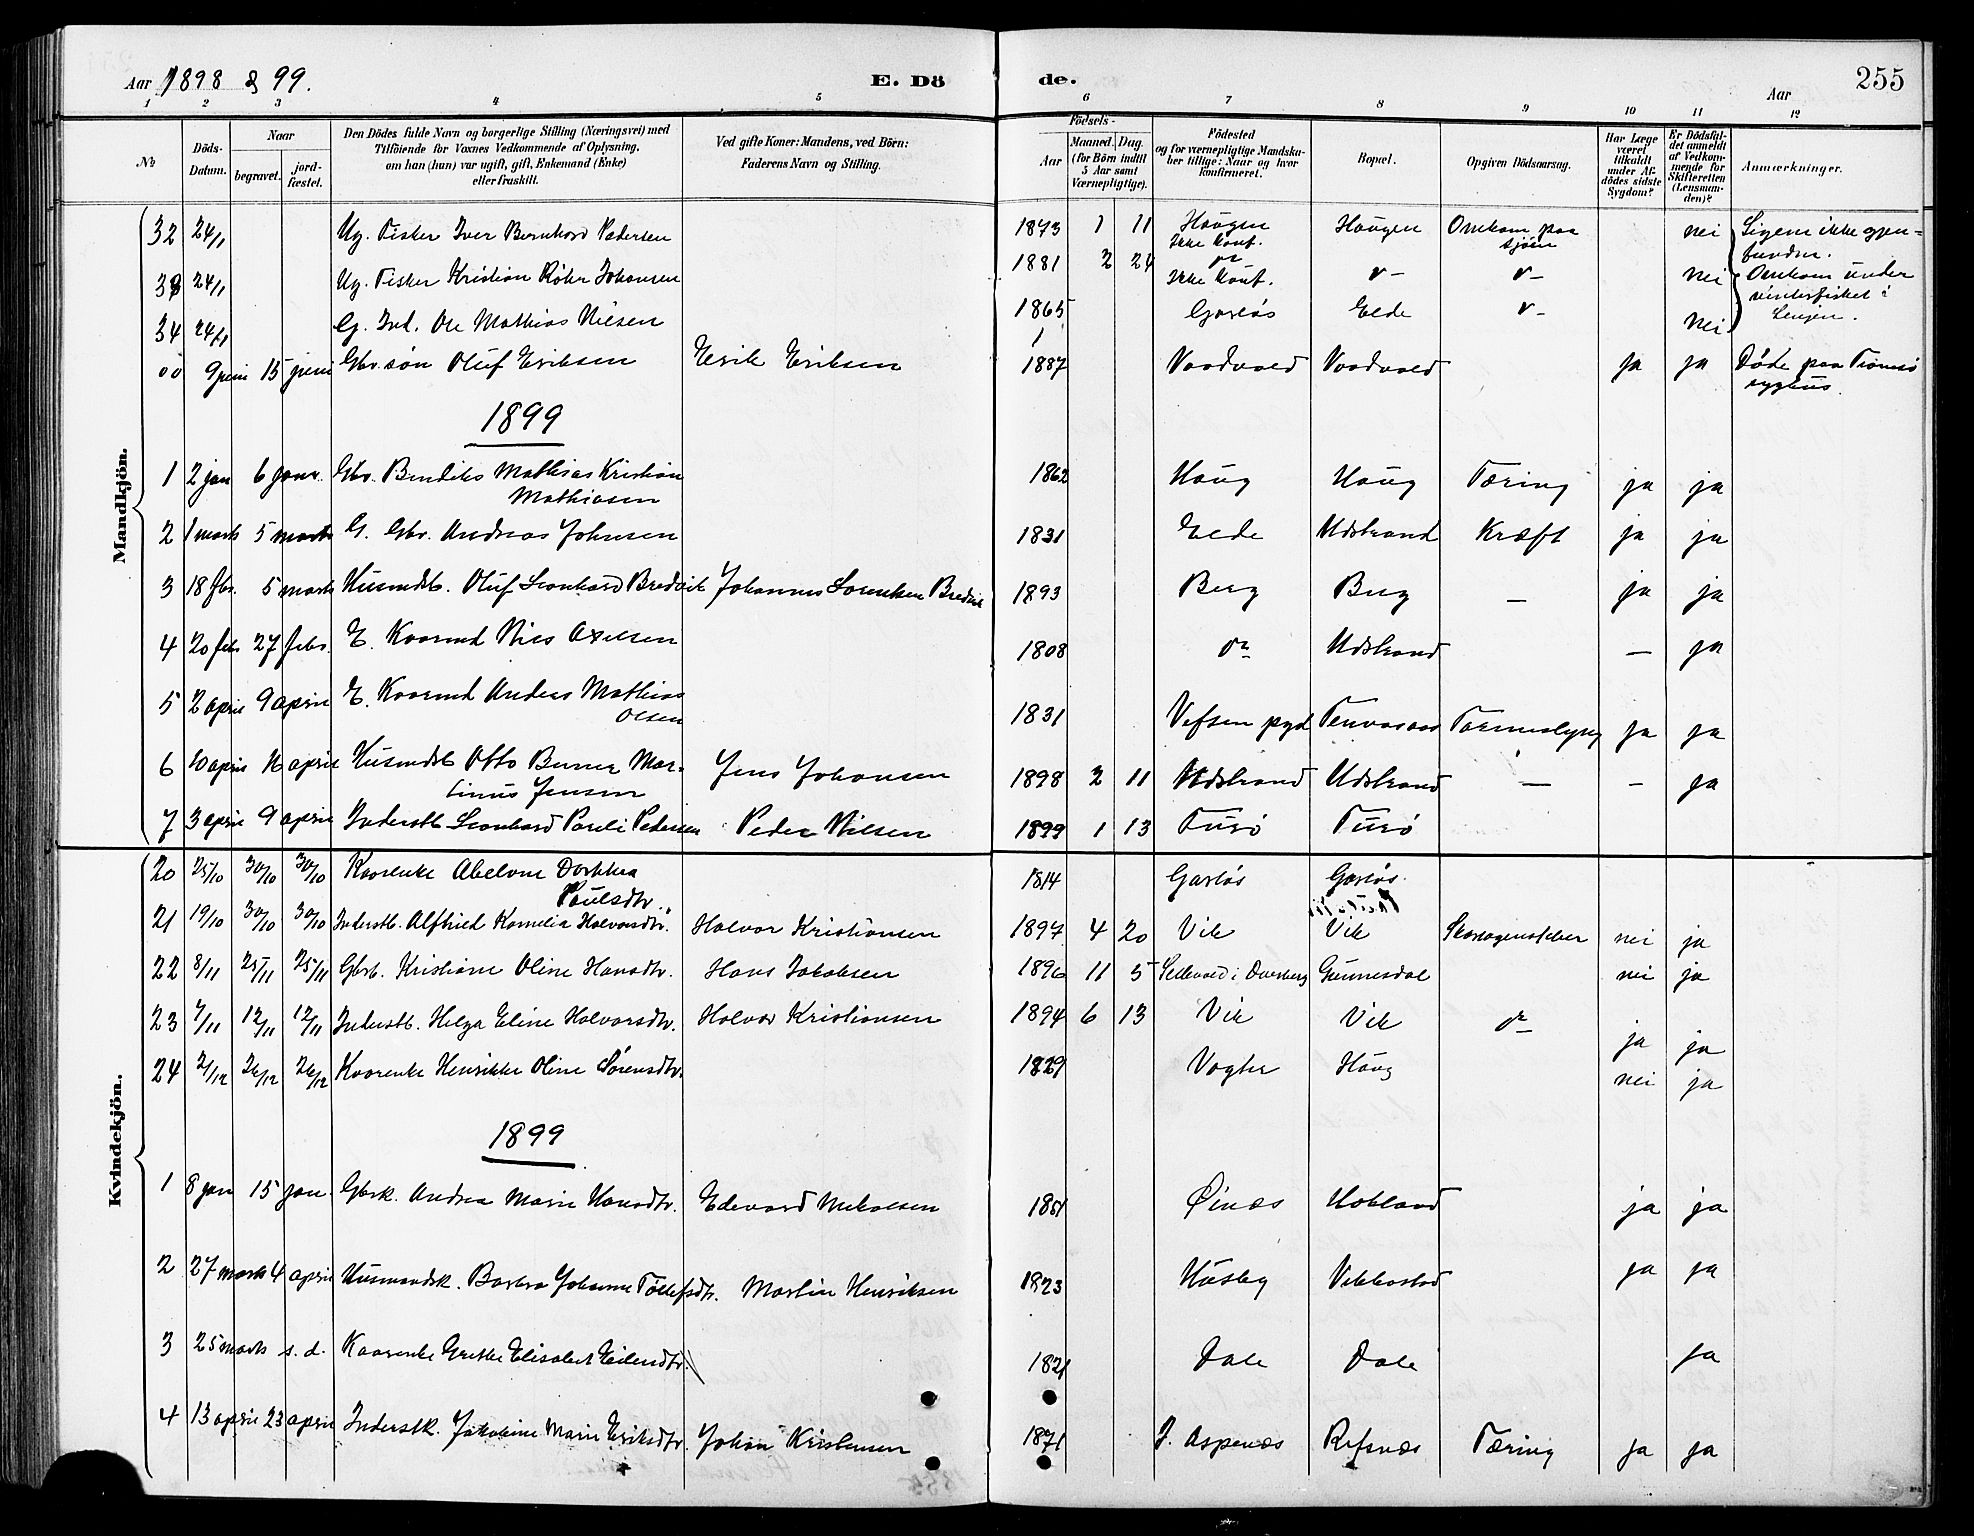 Aar 1898 & 99. E. Dö de. Aar 255
1 2 3 4 5 6 7 8 9 10 11 12
No
Döds-Datum.
Naar
begravet.
jord-fæstet.
Den Dödes fulde Navn og borgerlige Stilling (Næringsvei) med
Tilföiende for Voxnes Vedkommende af Oplysning,
om han (hun) var ugift, gift, Enkemand (Enke)
eller fraskilt.
Ved gifte Koner: Mandens, ved Börn:
Faderens Navn og Stilling.
Födsels-
Aar
Maaned. Dag.
(for Börn indtil
5 Aar samt
Værnepligtige).
Födested
og for værnepligtige Mandska-
ber tillige: Naar og hvor
konfirmeret.
Bopæl.
Opgiven Dödsaarsag.
Har Læge
været
tilkaldt
under Af-
dödes sidste
Sygdom?
Er Dödsfal-
det anmeldt
af Vedkom-
mende for
Skifteretten
(Lensman-
den)?
Anmærkninger.
Mandkjön.
32 24/1 Ug. Fisker Iver Bernhard Pedersen 1873 1 11 Haugen Haugen Omkom paa nei Ligene ikke gjen-
Ikke konf. sjøen fundne.
33 24/1 Ug. Fisker Kristian Røhr Johansen 1881 2 24 do do do nei Omkom under
Ikke konf. vinterfisket i
34 24/1 G. Ind. Ole Mathias Nilsen 1865 Garløs Elde do nei Senjen.
00 9 juni 15 juni Gbr.søn Oluf Eriksen Erik Eriksen 1887 Vaadvold Vaadvold ja ja Døde paa Tromsø
sygehus.
1899
1 2 jan 6 janr. Gbr. Bendiks Mathias Kristian 1862 Haug Haug Tæring ja ja
Mathiasen
2 1 marts 5 marts G. Gbr. Andreas Johnsen 1831 Elde Udstrand Kræft ja ja
3 18 fbr. 5 marts Husmdsb. Oluf Leonhard Bredvik Johannes Lorentsen Bredvik 1893 Berg Berg — ja ja
4 20 febr 27 febr. E. Kaarmd Nils Axelsen 1808 do Udstrand — ja
5 2 april 9 april E. Kaarmd Anders Mathias 1831 Vefsen pgd ja ja
Olsen
6 10 april 16 april Husmdsb Otto Berner Mar- Jens Johansen 1898 2 11 Udstrand Udstrand — – ja
tinus Jensen
7 3 april 9 april Inderstb Leonhard Pauli Pedersen Peder Nilsen 1899 1 13 Furø Furø
Kvindekjön.
20 25/10 30/10 30/10 Kaarenke Abelone Dorthea 1814 Garløs Garløs.
Paulsdtr.
21 19/10 30/10 30/10 Inderstb. Alfhild Kornelia Halvorsdtr. Halvor Kristiansen 1897 4 20 Vik Vik Skarlagensfeber nei ja
22 8/11 25/11 25/11 Gbrb. Kristiane Oline Hansdtr. Hans Jakobsen 1896 11 5 i Dverberg Gunnesdal nei ja
23 7/11 12/11 12/11 Inderstb. Helga Eline Halvorsdtr. Halvor Kristiansen 1894 6 13 Vik Vik do ja ja
24 2/12 26/12 26/12 Kaarenke Henrikke Oline Sørensdtr. 1829 Vogter Haug nei ja
1899
1 8 jan 15 jan. Gbrk. Andrea Marie Hansdtr. Edevard Nikolsen 1851 Øinæs Hobland ja ja
2 27 marts 4 april Husmandsk. Barbra Johanne Tollefsdtr. Martin Henriksen 1823 Husby Vikkestad ja ja
3 25 marts s. d. Kaarenke Grethe Elisabet Eilertsdtr. 1821 Dale Dale ja
4 13 april 23 april Inderstk. Jakobine Marie Eriksdtr. Johan Kristensen 1871 I. Aspenæs Refsnæs Tæring ja ja